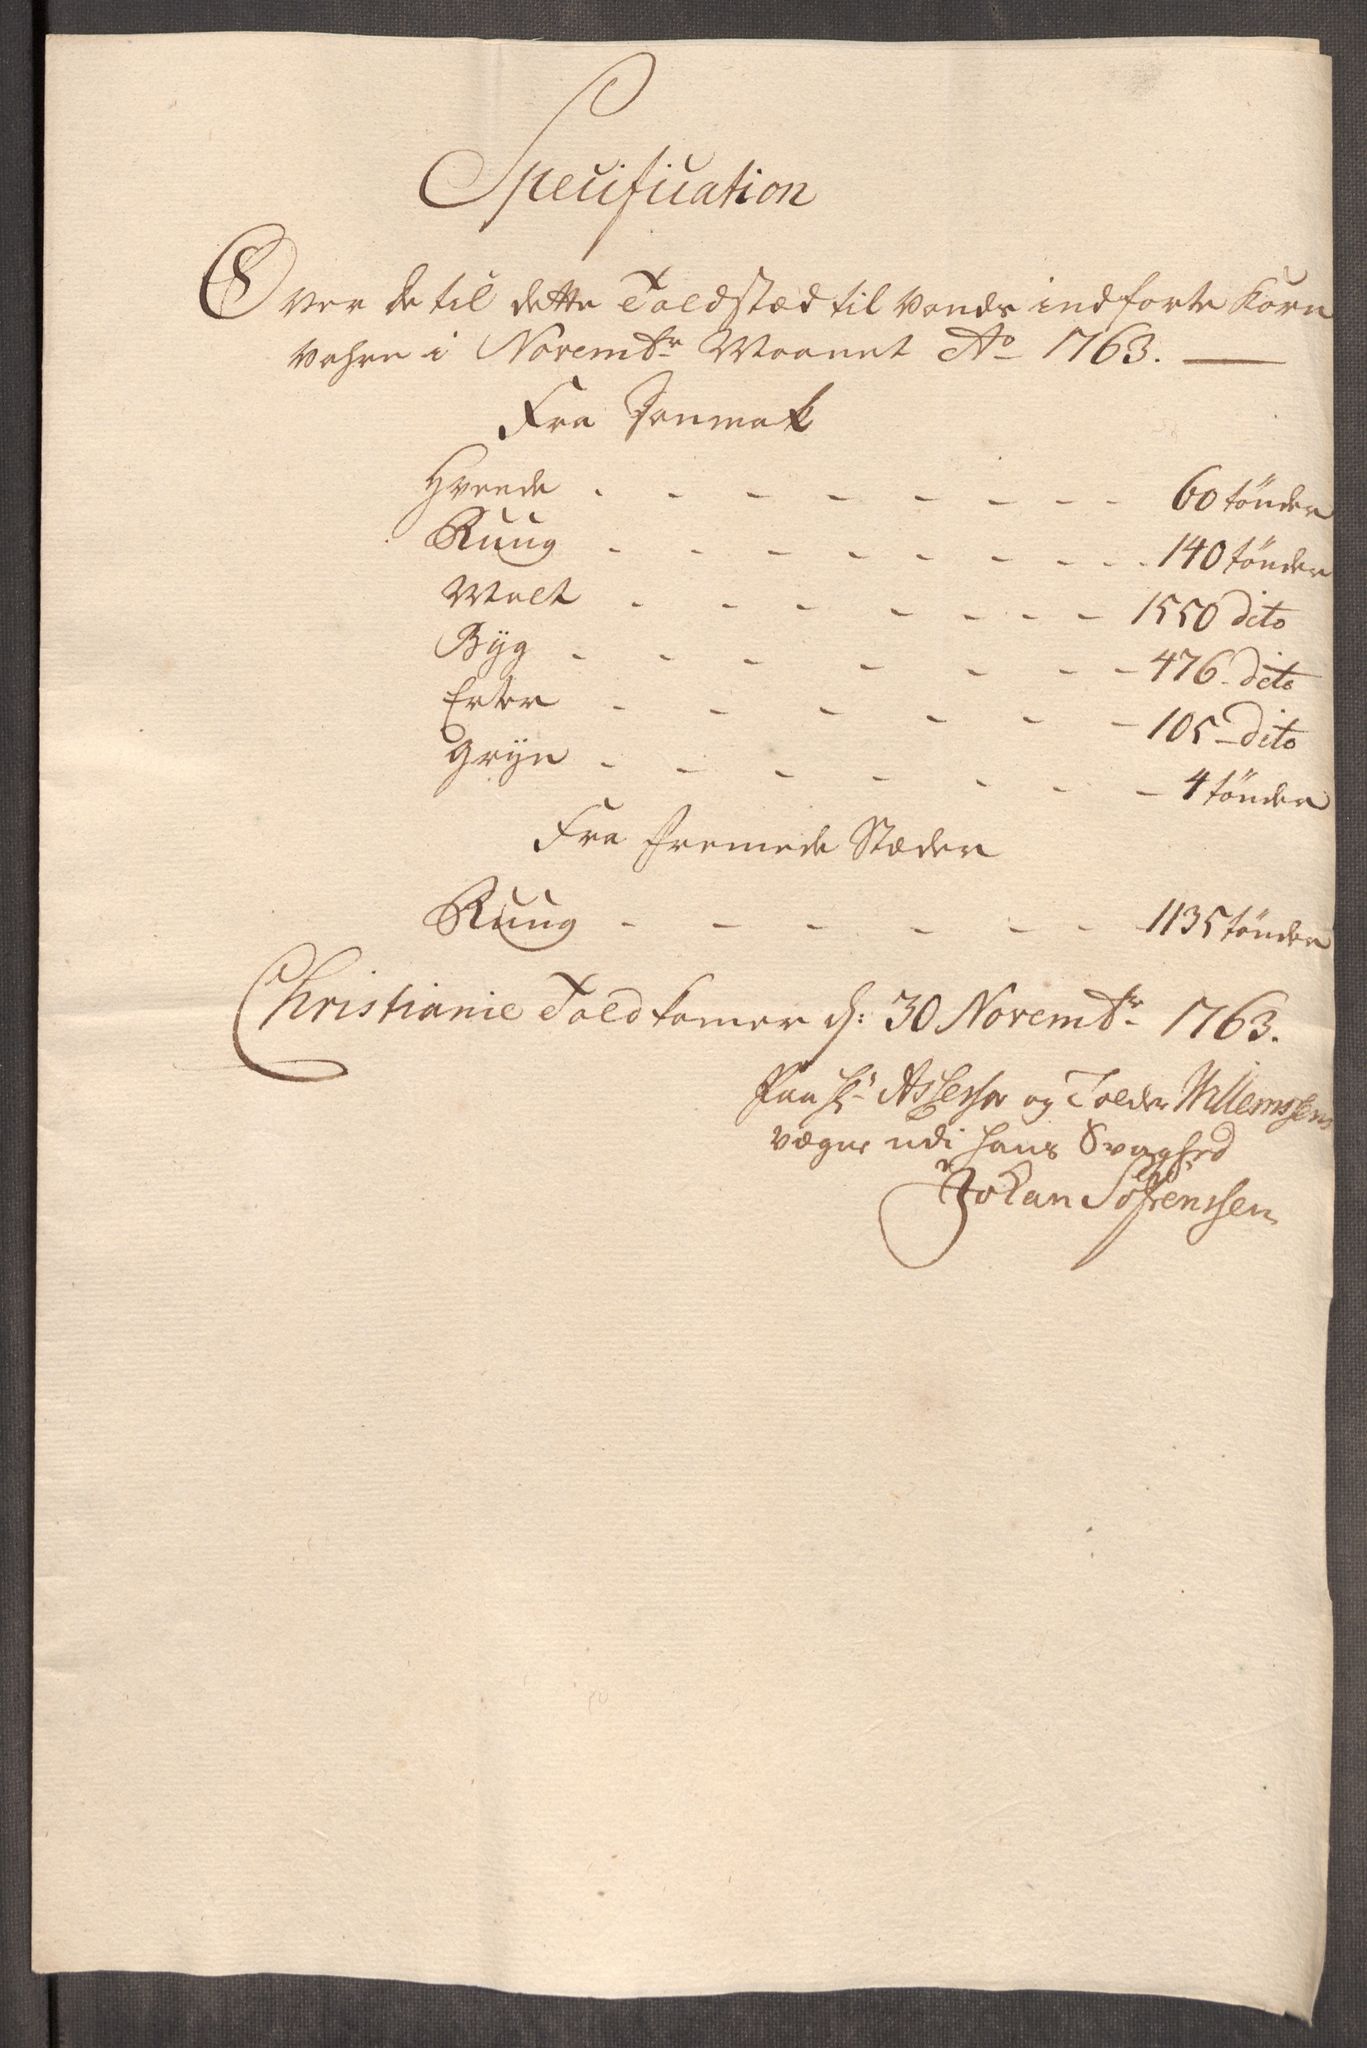 Specification
Over de til dette Toldstæd til Vands indførte Korn
Vahre i Novembr Maanet Ao 1763.
Fra Danmark
Hveede - - - - - - - - 60 tönder
Ruug - - - - - - - - 140 tönder
Malt - - - - - - - 1550 dito
Byg - - - - - - - 476 dito
Erter - - - - - - 105 dito
Gryn - - - - - - - 4 tönder
Fra fremede Stæder
Ruug - - - - - - 1135 tönder
Christianie Toldkamer d: 30 Novembr 1763.
Paa Hr Assessor og Tolder Willemssens
vegne udi hans Svaghed
Johan Sørenssen